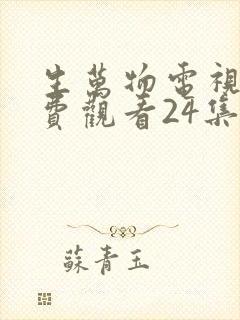 生萬物電視
費觀看24集
蘇青玉